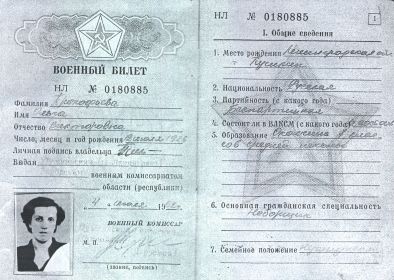 ВОЕННЫЙ БИЛЕТ
НЛ № 0180885
Фамилия Прокофьева
Имя
Отчество Викторовна
Число, месяц и год рождения
Личная подпись владельца
Выдан
военным комиссариатом
области (республики)
4
ВОЕННЫЙ КОМИССАР
М. П.
(звание, подпись)
НЛ № 0180885
1
I. Общие сведения
1. Место рождения Ленинградская
г. Пушкин
2. Национальность Русская
3. Партийность (с какого года)
беспартийная
4. Состоит ли в ВЛКСМ (с какого года)
5. Образование Окончила 8 клас
сов средней школы
6. Основная гражданская специальность
Наборщик
7. Семейное положение